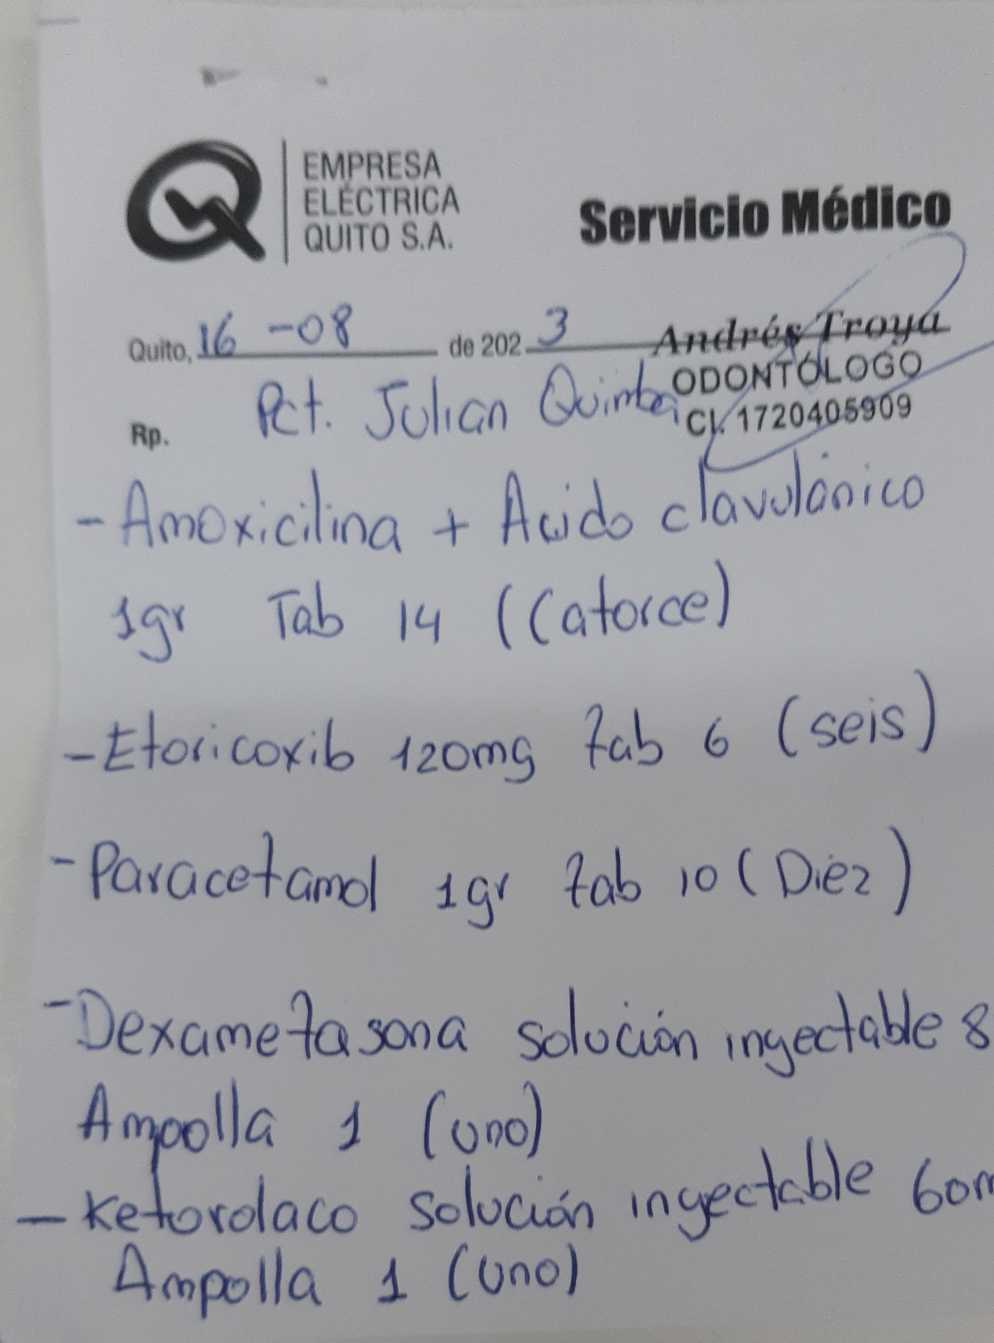 EMPRESA
ELÉCTRICA
QUITO S.A.
Servicio Médico
Quito, 16 -08 de 2023
Andrés Troya
ODONTÓLOGO
CI. 1720405909
Rp. Pct. Julian
- Amoxicilina + Acido clavulánico
1gr Tab 14 (Catorce)
- Etoricoxib 120mg Tab 6 (seis)
- Paracetamol 1gr tab 10 (Diez)
- Dexametasona solución ingectable 8
Ampolla 1 (uno)
- Ketorolaco solución ingectable 60m
Ampolla 1 (uno)